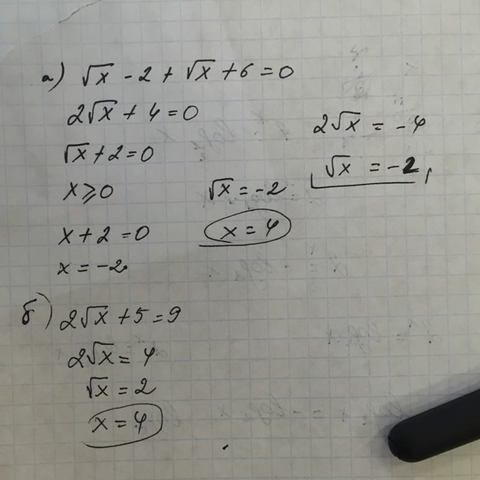 а) √x - 2 + √x + 6 = 0
2√x + 4 = 0
√x + 2 = 0
x ⩾ 0
x + 2 = 0
x = -2
√x = -2
x = 4
2√x = -4
√x = -2
б) 2√x + 5 = 9
2√x = 4
√x = 2
x = 4